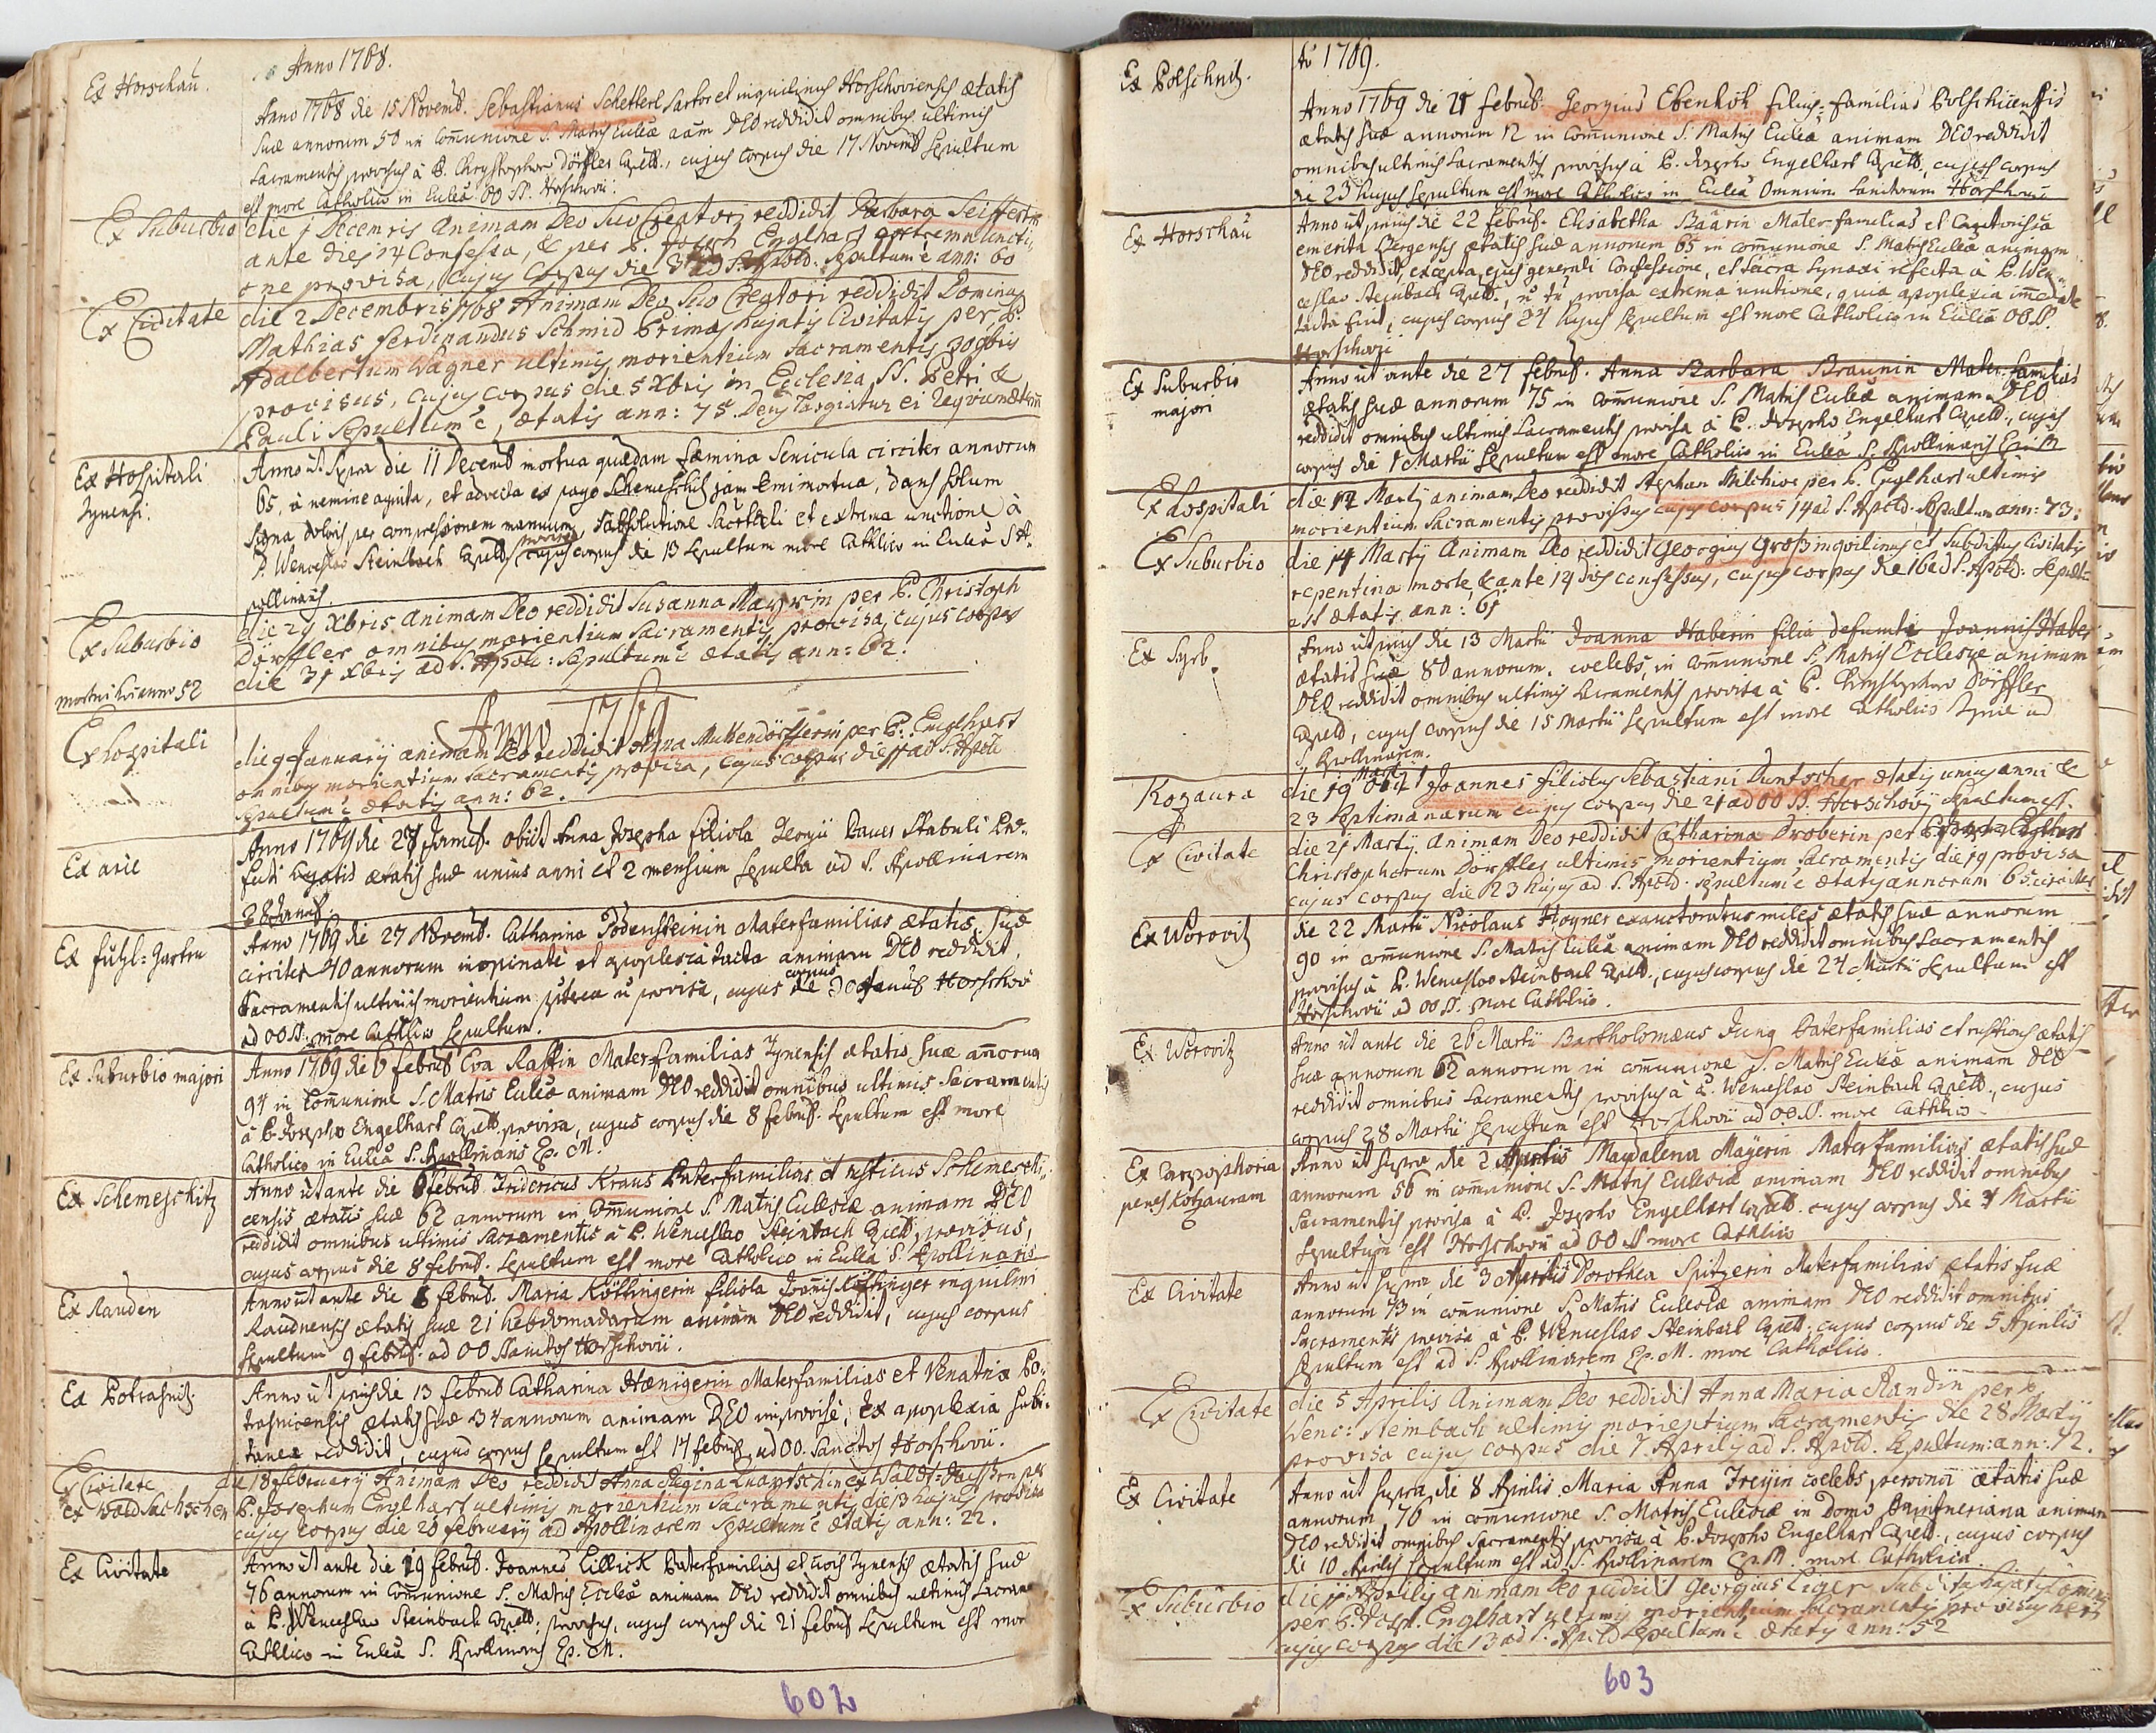 Anno 1768.
Ex Horschau.
Anno 1768 die 15 Novemb. Sebastianus Schetterl Sartor et inquilinus Horschoviensis ætatis
suæ annorum 50 in Communione S. Matris Eccleæ aam DEO reddidit omnibus ultimis
Sacramentis provisus à P. Chrystophoro Dörffler Capell., cujus corpus die 17 Novemb sepultum
est more Catholico in Eccleâ OO SS. Horschovii.
Ex Suburbio
die 1 Decembris Animam Deo Suo Creatori reddidit, Barbara
ante dies 14 Confessa, & per P. Joseph Englhart extrema uncti,,
one provisa, cujus Corpus die 3 ad S. Apold. Sepultum ē ann: 60
Ex Civitate
die 2 Decembris 1768 Animam Deo Suo Creatori reddidit Dominus
Mathias Ferdinandus Schmid Primas hujatis Civitatis per P.
Adalbertum Wagner ultimis morientium Sacramentis 30 9bris
provisus, cujus corpus die 5 Xbris in Ecclesia SS. Petri &
Pauli Sepultum ē, ætatis ann: 75. Deus largiatur ei requiem
Ex Hospitali
Tynensi.
Anno ut supra die 11 Decemb mortua quædam fæmina Senicula circiter annorum
65, à nemine agnita, et advecta ex pago Schemeschitz jam semimortua, dans solum
signa doloris per compressionem manuum, absolutione Sacrtali et extrema unctione à
P. Wenceslao Steinbach Capell provisa cujus corpus die 13 sepultum more Cathlico in Eccleâ S A-
pollinaris.
Ex Suburbio
die 29 Xbris animam Deo reddidit Susanna Mayrin per P. Christoph
Dörffler omnibus morientium Sacramentis provisa, cujus corpus
die 31 Xbris ad S. Apold: Sepultum ē ætatis ann: 62.
mortui hoc anno 52
Anno 1769
Ex hospitali
die 9 January animam Deo reddidit Anna Muttendörfferin per P. Englhart
omnibus morientium Sacramentis provisa, cujus corpus die 11 ad S. Apold
Sepultum ē ætatis ann: 62.
Ex arce
Anno 1769 die 28 Januar. obiit Anna Josepha filiola Georgii Bauer Stabuli Præ-
fecti ætatis suæ unius anni et 2 mensium sepulta ad S. Apollinarem
Anno 1769 die 27 Novemb. Catharina Podensteinin Materfamilias ætatis suæ
circiter 40 annorum inopinatè et apoplexiâ tacta animam DEO reddidit,
Sacramentis ultimis morientium n̄ provisa, cujus corpus die 30 Januar Horschov
ad OO SS. more Cathlico sepultum.
Ex Suburbio majori
Anno 1769 die 6 Februar Eva Raffin Materfamilias Tynensis ætatis suæ annorum
94 in Communione S. Matris Eccleæ animam DEO reddidit omnibus ultimis Sacramentis
à P. Josepho Engelhart Capell. provisa, cujus corpus die 8 Februar. sepultum est more
Catholico in Eccleâ S. Apollinaris Ep. M.
Ex Schemeschitz
Anno ut ante die 6 Februar. Fridericus Kraus Paterfamilias et rusticus Schemeschi-
censis ætatis suæ 62 annorum in Communione S. Matris Ecclesiæ animam DEO
reddidit omnibus ultimis Sacramentis à P. Wenceslao Steinbach Capell provisus,
cujus corpus die 8 Februar. sepultum est more Catholico in Eccleâ S. Apollinaris
Ex Rauden
Anno ut ante die 8 Februar. Maria Köttingerin filiola Joannis Köttinger inquilini
Raudnensis ætatis suæ 21 hebdomadarum animam DEO reddidit, cujus corpus
sepultum 9 Februar. ad OO Sanctos Horschovii.
Ex Potrasnitz.
Anno ut prius die 13 Februar Catharina Hænigerin Materfamilias et Venatrix Po-
trasnicensis ætatis suæ 34 annorum animam DEO improvisè, ex apoplexia subi-
tanea reddidit, cujus corpus sepultum est 17 Februar. ad OO. Sanctos Horschovii.
Ex Civitate
ex Wald Sachschen
die 18 February Animam Deo reddidit Anna Regina ex Waldt-Sachsen per
P. Josephum Englhart ultimis morientium Sacramentis die 13 hujus provisa
cujus corpus die 20 February ad Apollinarem Sepultum ē ætatis ann: 22.
Ex Civitate
Anno ut ante die 19 Februar. Joannes Lillick Paterfamilias et Tynensis ætatis suæ
76 annorum in Communione S. Matris Eccleæ animam DEO reddidit omnibus ultimis Sacram
à P. Wenceslao Steinbach Capell: provisus, cujus corpus die 21 Februar sepultum est more
Cathlico in Eccleâ S. Apollinaris Ep. M.
602
Ao 1769.
Ex Polschitz.
Anno 1769 die 21 Februar. Georgius Ebenhöh filius-familias Polschicensis
ætatis suæ annorum 12 in Communione S. Matris Eccleæ animam DEO reddidit
omnibus ultimis Sacramentis provisus à P. Josepho Engelhart Capell., cujus corpus
die 23 hujus sepultum est more Catholico in Eccleâ Omnium Sanctorum Horschovii
Ex Horschau
Anno ut prius die 22 Februar. Elisabetha Baärin Mater familias et Cantorissa
emerita ætatis suæ annorum 65 in Communione S. Matris Eccleæ animam
DEO reddidit, excepta ejus generali Confessione, et Sacra Synaxi refecta à P. Wen-
ceslao Steinbach Capell., n̄ provisa extrema unctione, quia apoplexia immediate
tacta fuit, cujus corpus 24 hujus sepultum est more Catholico in Eccleâ OO SS.
Horschovii
Ex Suburbio
majori
Anno ut ante die 27 Februar. Anna Barbara Braunin Mater-familias
ætatis suæ annorum 75 in Communione S. Matris Eccleæ animam DEO
reddidit omnibus ultimis Sacramentis provisa à P. Josepho Engelhart Capell., cujus
corpus die 1 Martii sepultum est more Catholico in Eccleâ S. Apollinaris Ep. M.
Ex hospitali
die 12 Marty animam Deo reddidit Stephan Milchior per P. Englhart ultimis
morientium Sacramentis provisus cujus corpus 14 ad S. Apold. Sepultum ann: 73.
Ex Suburbio
die 14 Marty Animam Deo reddidit Georgius Groß inqvilinus et Subditus Civitatis
repentina morte, & ante 14 dies confessus, cujus corpus die 16 ad S. Apold: sepult:
est ætatis ann: 61
Ex Syrb.
Anno ut prius die 13 Martii Joanna Haberin filia defuncti Joannis Haber
ætatis suæ 80 annorum, coelebs, in Communione S. Matris Ecclesiæ animam
DEO reddidit omnibus ultimis Sacramentis provisa à P. Chrystophoro Dörffler
Capell, cujus corpus die 15 Martii sepultum est more Catholico Tynæ ad
S. Apollinarem.
Kozaura
die 19 Marty obiit Joannes filiolus Sebastiani Duntscher ætatis unius anni &
23 Septimanarum cujus corpus die 21 ad OO SS. Horschovy sepultum est.
Ex Civitate
die 21 Marty Animam Deo reddidit Catharina Droberin per
Christophorum Dörffler ultimis morientium Sacramentis die 19 provisa
cujus corpus die 23 hujus ad S. Apold. sepultum ē ætatis annorum 65 circiter
Ex Worovitz
die 22 Martii Nicolaus Hoyner exauctoratus miles ætatis suæ annorum
90 in Communione S. Matris Eccleæ animam DEO reddidit omnibus Sacramentis
provisus à P. Wenceslao Steinbach Capell., cujus corpus die 24 Martii sepultum est
Horschovii ad OO SS. more Cathlico.
Ex Worovitz
Anno ut ante die 26 Martii Bartholomæus Jung Paterfamilias et rusticus ætatis
suæ annorum 62 annorum in communione S. Matris Eccleæ animam DEO
reddidit omnibus Sacramentis provisus à P. Wenceslao Steinbach Capell., cujus
corpus 28 Martii sepultum est Horschovii ad OO. SS. more Cathlico.
Ex Carpophoria
penes Kozauram
Anno ut supra die 2 Aprilis Magdalena Mayerin Materfamilias ætatis suæ
annorum 56 in communione S. Matris Ecclesiæ animam DEO reddidit omnibus
Sacramentis provisa à P. Josepho Engelhart Capell. cujus corpus die 4 Martii
sepultum est Horschovii ad OO SS more Cathlico
Ex Civitate
Anno ut supra die 3 Aprilis Dorothea Spitzerin Materfamilias ætatis suæ
annorum 73 in communione S. Matris Ecclesiæ animam DEO reddidit omnibus
Sacramentis provisa à P. Wenceslao Steinbach Capell. cujus corpus die 5 Aprilis
sepultum est ad S. Apollinarem Ep. M. more Catholico.
Ex Civitate
die 5 Aprilis Animam Deo reddidit Anna Maria Randin per P.
Wenc: Steinbach ultimis morientium Sacramentis die 28 Marty
provisa cujus corpus die 7. Aprily ad S. Apold. Sepultum: ann: 72.
Ex Civitate
Anno ut supra die 8 Aprilis Maria Anna Freyin coelebs persona ætatis suæ
annorum 76 in communione S. Matris Ecclesiæ in Domo animam
DEO reddidit omnibus Sacramentis provisa à P. Josepho Engelhart Capell., cujus corpus
die 10 Aprilis sepultum est ad S. Apollinarem Ep. M. more Catholico.
Ex Suburbio
die 11 Aprilis animam Deo reddidit Georgius Liger Subditus hujatis
per P. Joseph. Englhart ultimis morientium Sacramentis provisus
cujus corpus die 13 ad S. Apold Sepultum ē ætatis ann: 52
603